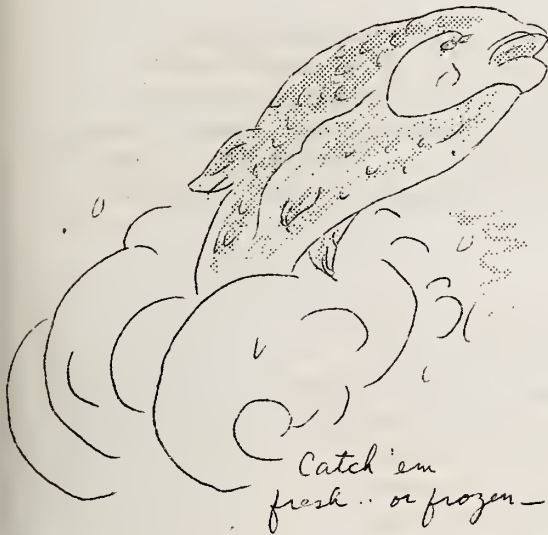 Catch 'em
fresh.. or frozen—